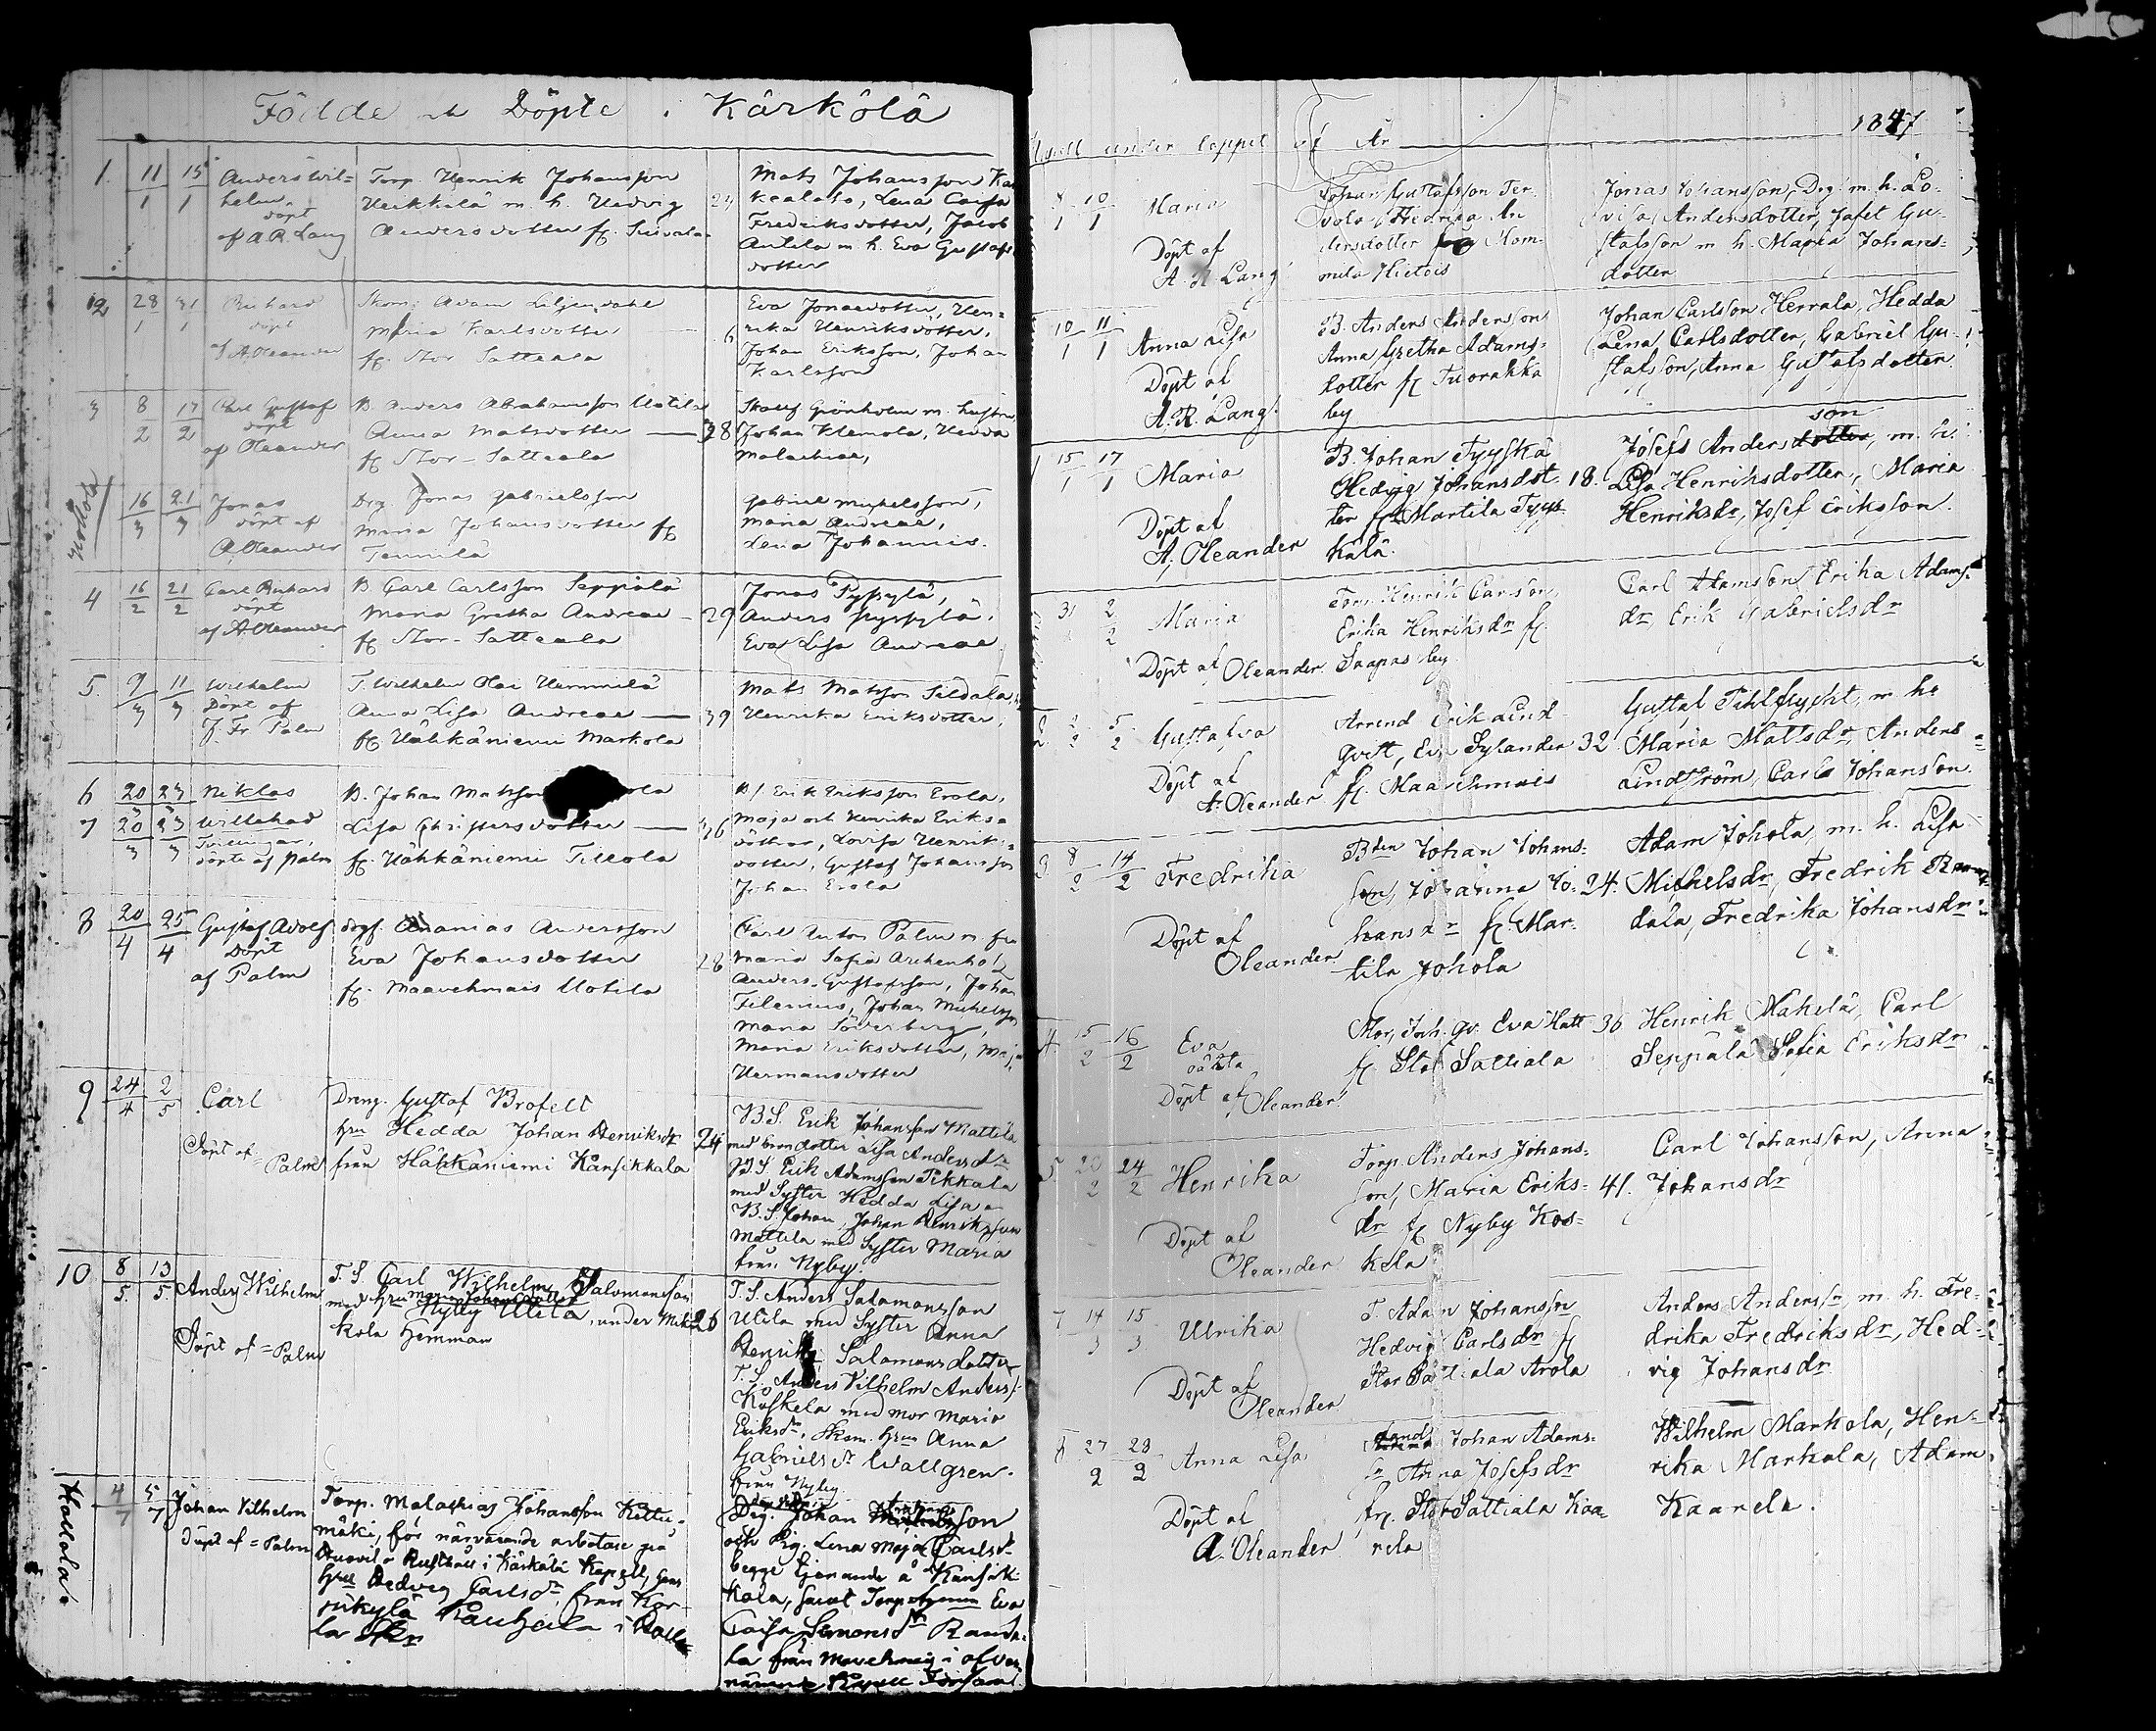 Födde och Döpte i Kärkölä
1 11/1 15/1 Anders Wil=
helm
döpt
af A. R. Lang
Torp. Henrik Johansson
Heikkilä m. h. Hedvig
Andersdotter fr.
Mats Johansson
Lena Caisa
Fredriksdotter, Jacob
Anttila m. h. Eva Gustafs
dotter
2 28/1 31/1 Richard
döpt
af A. Oleander
Adam Liljendahl
Maria Karlsdotter
fr. Stor Sattiala
Eva Jonaedotter, Hen=
rika Henriksdotter,
Johan Eriksson, Johan
Karlsson
3 8/2 17/2 Carl Gustaf
döpt
af Oleander
B. Anders Abrahamsson Uotila
Anna Matsdotter 28
fr. Stor-Sattiala
Grönholm m. hustru
Johan Klemola, Hedda
Malachiae,
16/3 21/3 Jonas
döpt af
A. Oleander
Drg. Jonas Gabrielsson
Maria Johansdotter fr.
Tennilä
Gabriel Michelsson,
Maria Andreae,
Lena Johannis.
4 16/2 21/2 Carl Richard
döpt
af A. Oleander
B. Carl Carlsson Seppälä
Maria Gretha Andreae 29
fr. Stor-Sattiala
Jonas Pyssylä,
Anders Pyssylä,
Eva Lisa Andreae
5. 9/3 11/3 Wilhelm
Döpt af
J. Fr. Palm
T. Wilhelm Olai Hemmilä
Anna Lisa Andreae 39
fr. Hähkäniemi Markola
Mats Matsson
Henrika Eriksdotter,
6 20/3 23/3 Niklas
7 20/3 23/3 Willehad
Tvillingar,
döpte af Palm
B. Johan Matsson
Lisa Christersdotter 36
fr. Hähkäniemi Tillola
B/ Erik Eriksson Erola,
Maja och Henrika Eriks=
döttrar, Lovisa Henriks=
dotter, Gustaf Johansson
Johan Erola
8 20/4 25/4 Gustaf Adolf
Döpt
af Palm
Ananias Andersson
Eva Johansdotter 28
fr. Maavehmais Uotila
Carl Anton Palm m. fru
Maria Sofia Archenholz
Anders Gustafsson, Johan
Filenius, Johan Michelsson
Maria Söderberg,
Maria Eriksdotter, Maja
Hermansdotter
9 24/4 2/5 Carl
Döpt af=
Palm
Dreng. Gustaf Brofelt
hru Hedda Johan Henriksdr 24
från Hähkäniemi Kånsikkala
B.S. Erik Johansson Mattila
med brorsdotter Lisa Andersdr
B.S. Erik Adamsson Pekkala
med Syster Hedda Lisa
B.S. Johan, Johan Henriksson
Mattila med Syster Maria
från Nyby.
10 8/5 13/5 Anders Wilhelm
Döpt af=Palm
T. S. Carl Wilhelm Salomonsson
med hru Maria Johansdotter
Nyby Utila, under
kola Hemman 26
T.S. Anders Salamonsson
Utila med Syster Anna
Henrika Salamonsdotter
T. S. Anders Vilhelm Anderss.
Koskela med mor Maria
Eriksdr, Skom. hru Anna
Gabrielsdr Wallgren.
från Nyby
Hollola
4/7 5/7 Johan Vilhelm
Döpt af=Palm
Torp. Malakias Johansson
mäki, för närvarande arbetare på
Rusthåll i Kärkölä Kapell, hans
hru Hedvig Carlsdr från Kor-
pikylä i Hollo
la Skn
Drg. Johan
och Pig. Lena Maja Carlsdr
begge tjenande å Kånsik
kala, samt Torp. hru Eva
Caisa Simonsdr
la från Mavehmais i ofvan
nämnde Kapell Församl
Kapell under loppet af År 1847
8/1 10/1 Maria
Döpt af
A. R. Lang
Johan Gustafsson Ter
vola, Fredrika An
dersdotter från Hom-
mila Hietois
Jonas Johansson, Drg. m. h. Lo-
visa Andersdotter, Jafet Gu-
stafsson m h. Maria Johans=
dotter
10/1 11/1 Anna Lisa
Döpt af
A. R. Lang.
B. Anders Anderson
Anna Gretha Adams-
dotter fr. Tuorakka
by
Johan Carlsson Herrala, Hedda
Lena Carlsdotter, Gabriel Gu-
stafsson, Anna Gustafsdotter
15/1 17/1 Maria
Döpt af
A. Oleander
B. Johan Tyyskä
Hedvig Johansdot 18.
ter fr. Martila Tyys
kälä.
Josefs Andersdotter son, m. h.
Lisa Henriksdotter, Maria
Henriksdr, Josef Eriksson.
31/1 2/2 Maria
Döpt af Oleander
Torp. Henrik Carlsson
Erika Henriksdr fr.
Saapas by
Carl Adamsson, Erika Adams-
dr, Erik Gabrielsdr
2/2 5/2 Gustafva
Döpt af
A. Oleander
Arrend Erik Lind-
qvist, Eva Sylander 32
fr. Maavehmais
Gustaf Pihlflycht, m h.
Maria Mattsdr, Anders
Lindström, Carl Johanson.
8/2 14/2 Fredrika
Döpt af
Oleander.
Bden Johan Johans-
son, Johanna Jo- 24.
hansdr fr. Mar-
tila Johola
Adam Johola, m. h. Lisa
Michelsdr, Fredrik
dala, Fredrika Johansdr
15/2 16/2 Eva
oäkta
Döpt af Oleander.
Eva Matt 36
fr. Stor Sattiala
Henrik Mahelä, Carl
Seppälä Sofia Eriksdr
20/2 24/2 Henrika
Döpt af
Oleander
Torp. Anders Johans-
son, Maria Eriks- 41.
dr fr. Nyby Kos-
kela
Carl Johansson, Anna
Johansdr
7 14/3 15/3 Ulrika
Döpt af
Oleander
T. Adam Johansson
Hedvig Carlsdr fr
Stor Sattiala Arola
Anders Anderssn, m. h. Fre-
drika Fredriksdr, Hed-
vig Johansdr
27/2 28/2 Anna Lisa
Döpt af
A. Oleander
Johan Adams-
sn Anna Josefsdr
fr. Stor Sattiala Kaa-
rela
Wilhelm Markola, Hen-
rika Markola, Adam
Kaarela.